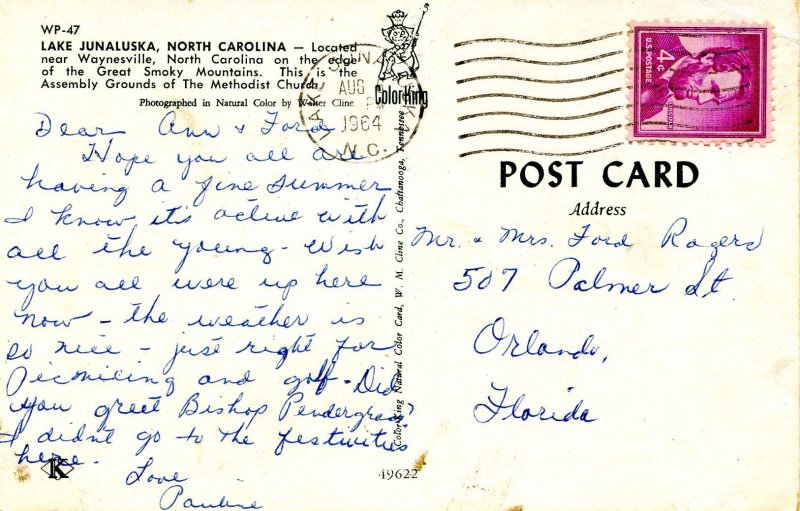 WP-47
LAKE JUNALUSKA, NORTH CAROLINA — Located
near Waynesville, North Carolina on the edge
of the Great Smoky Mountains. This is the
Assembly Grounds of The Methodist Church.
Photographed in Natural Color by Walter Cline
ColorKing
Dear Ann & Ford
Hope you all are
having a fine summer
I know it's active with
all the young - wish
you all were up here
now - the weather is
so nice - just right for
picnicing and golf. Did
you greet Bishop Pendergrass?
I didn't go to the festivities
here.
Love
Pauline
K
49622
Color-King Natural Color Card, W. M. Cline Co., Chattanooga, Tennessee
LAKE JUNALUSKA
AUG
PM
1964
N.C.
U.S. POSTAGE
4¢
LINCOLN
POST CARD
Address
Mr. & Mrs. Ford Rogers
507 Palmer St.
Orlando,
Florida